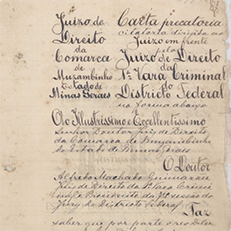 Juizo de
Direito
da
Comarca
de
Muzambinho
Estado de
Minas Geraes
Carta precatoria
citatoria dirigida ao
Juizo em frente
pelo
Juizo de Direito
da
1ª Vara Criminal
Districto Federal
na forma abaixo
Ao Illustrissimo e Excellentissimo
Senhor Doutor Juiz de Direito
da Comarca de Muzambinho
Estado de Minas Geraes
O Doutor
Alfredo Machado Guimarães
Juiz de Direito da 1ª Vara Crimi
Juiz de Direito
Faz
saber que por parte